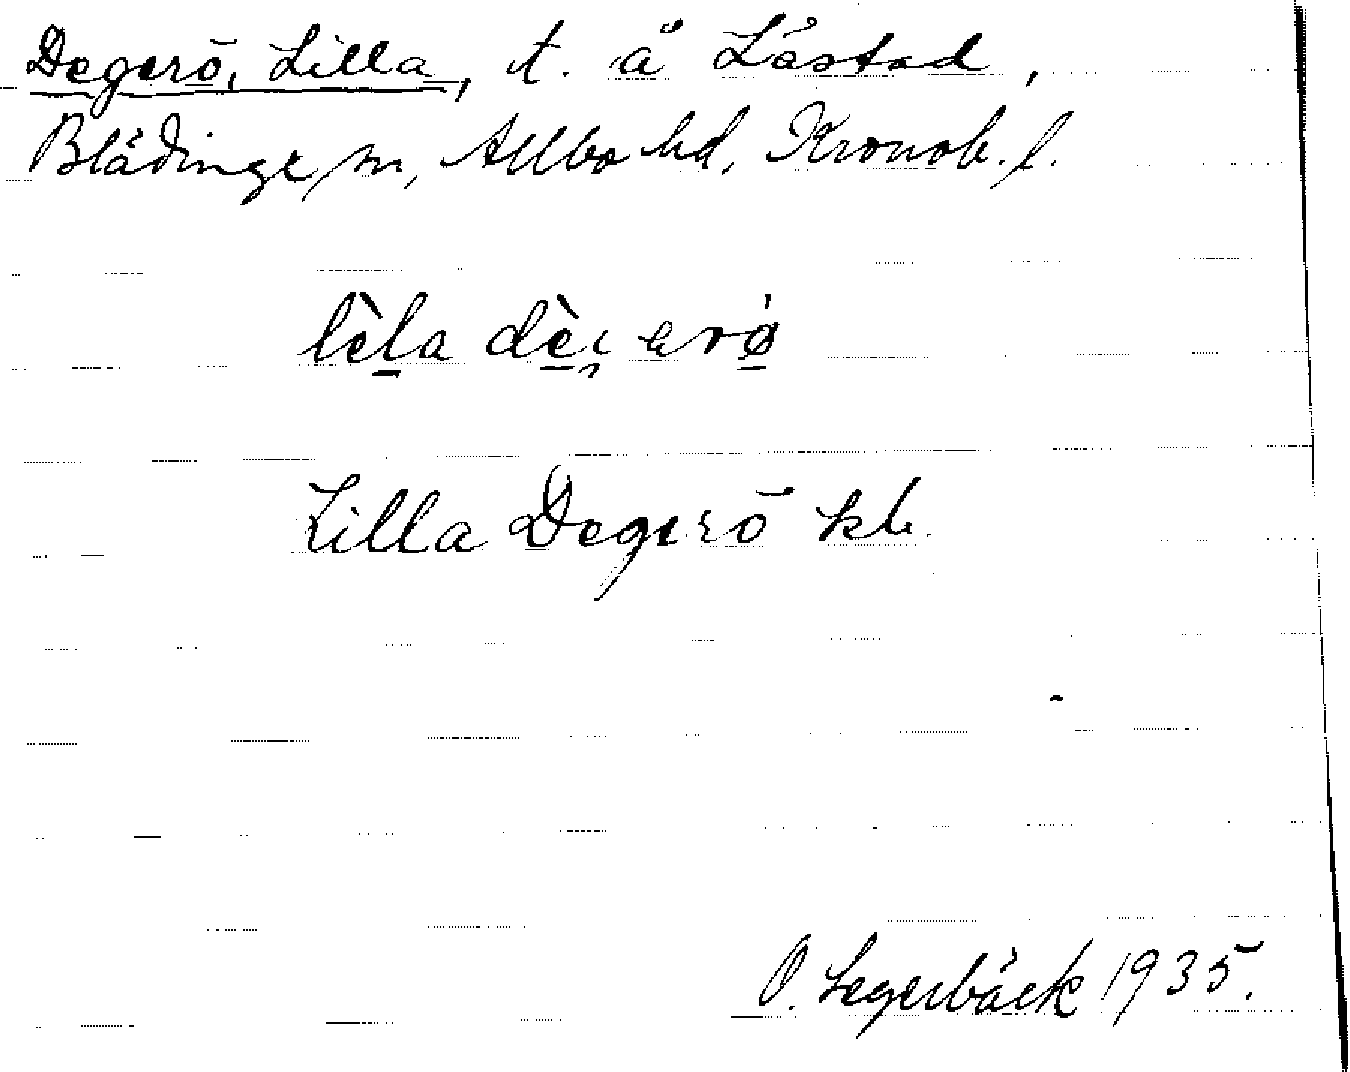 Degerö, Lilla, t. å Låstad,
Blädinge sn, Allbo hd, Kronob. l.
Lilla Degerö kb.
O. Segerbäck 1935.